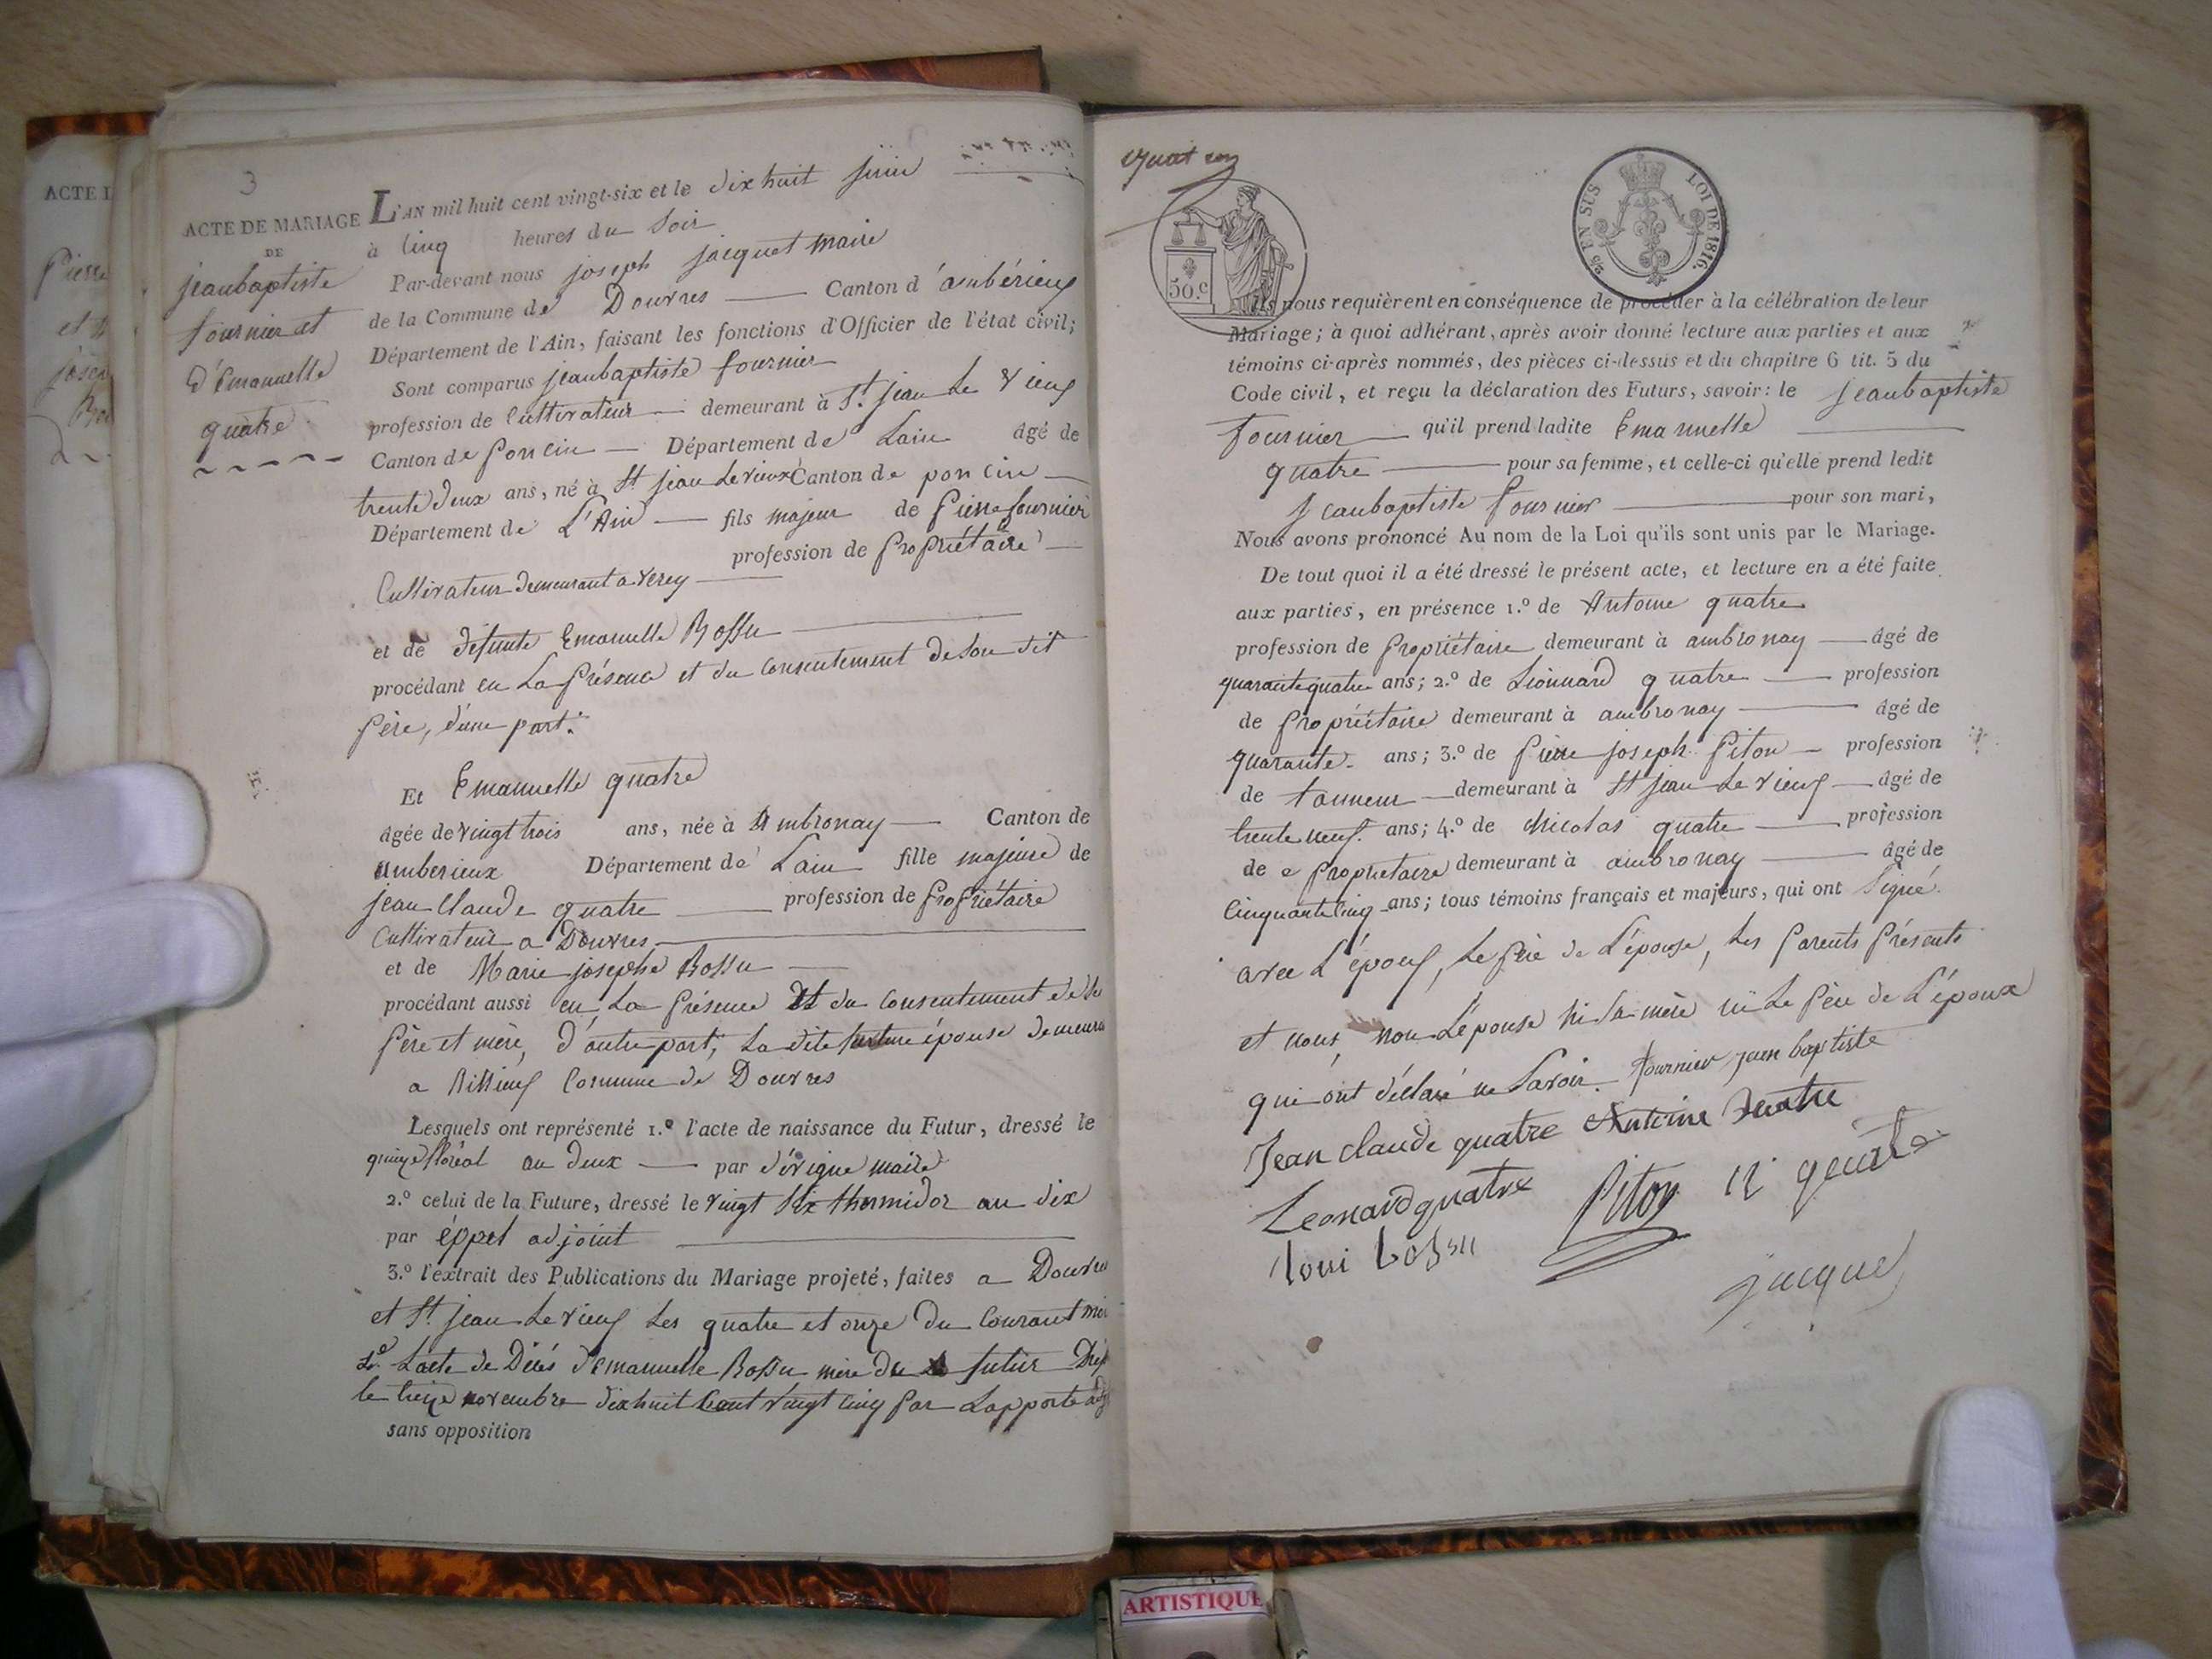 ACTE D
Pierre
et
josep
3
ACTE DE MARIAGE
DE
jeanbaptiste
fournier et
d'Emanuelle
quatre
L'AN mil huit cent vingt-six et le dix huit juin
à Cinq heures du Soir
Par-devant nous joseph jacquet maire
de la Commune de Douvres Canton d'ambérieux
Département de l'Ain, faisant les fonctions d'Officier de l'état civil;
Sont comparus jeanbaptiste fournier
profession de Cultivateur demeurant à St jean Le Vieux
Canton de Poncin Département de Lain âgé de
trente deux ans, né à St jean Le vieux Canton de poncin
Département de L'Ain fils majeur de Pierre fournier
profession de Propriétaire
Cultivateur demeurant a
et de défunte Emanuelle Bossu
procédant en La Présence et du Consentement de Son dit
Père, d'une part.
Et Emanuelle quatre
âgée de vingt trois ans, née à Ambronay Canton de
amberieux Département de Lain fille majeure de
jean Claude quatre profession de Propriétaire
Cultivateur a Douvres
et de Marie josephe Bossu
procédant aussi en La Présence Et du Consentement de Ses
Père et mère, d'autre part, La dite future épouse demeura
a Commune de Douvres
Lesquels ont représenté 1.º l'acte de naissance du Futur, dressé le
quinze floréal an deux par dérigne maire
2.º celui de la Future, dressé le vingt Six thermidor an dix
par adjoint
3.º l'extrait des Publications du Mariage projeté, faites a Douvres
et St jean Le vieux Les quatre et onze du Courant mois
Lacte de Décès d'emanuelle Bossu mère du futur
le treize novembre dix huit Cent vingt cinq Par Lapporte adj
sans opposition
50.c
25 EN SUS LOI DE 1816.
Ils nous requièrent en conséquence de procéder à la célébration de leur
Mariage; à quoi adhérant, après avoir donné lecture aux parties et aux
témoins ci-après nommés, des pièces ci-dessus et du chapitre 6 tit. 5 du
Code civil, et reçu la déclaration des Futurs, savoir: le Jeanbaptiste
fournier qu'il prend ladite Emanuelle
quatre pour sa femme, et celle-ci qu'elle prend ledit
Jeanbaptiste fournier pour son mari,
Nous avons prononcé Au nom de la Loi qu'ils sont unis par le Mariage.
De tout quoi il a été dressé le présent acte, et lecture en a été faite
aux parties, en présence 1.º de Antoine quatre
profession de Propriétaire demeurant à ambronay âgé de
quarante quatre ans; 2.º de Lionnard quatre profession
de Propriétaire demeurant à ambronay âgé de
quarante ans; 3.º de Pierre joseph Piton profession
de tanneur demeurant à St jean Le vieux âgé de
trente neuf ans; 4.º de Nicolas quatre profession
de Propriétaire demeurant à ambronay âgé de
Cinquante Cinq ans; tous témoins français et majeurs, qui ont Signé
avec L'époux, Le Père de L'épouse, Les Parents Présents
et nous, non L'épouse ni Sa mère ni Le Père de L'époux
qui ont déclaré ne Savoir. fournier jean baptiste
Jean claude quatre Antoine quatre
Leonard quatre Piton N quatre
Loui bossu
Jacquet
ARTISTIQUE